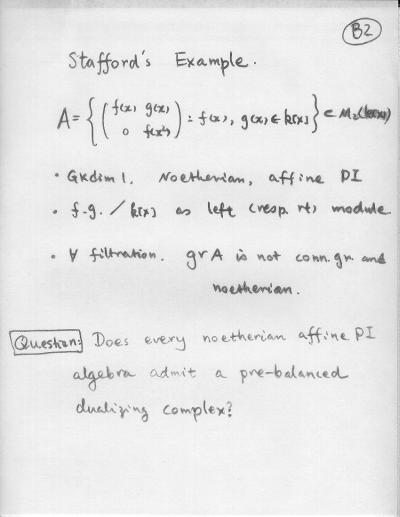 B2
Stafford's Example.
A = { ( f(x) g(x) ; 0 f(x²) ) : f(x), g(x) ∈ k[x] } ⊂ M₂(k[x])
• GKdim 1. Noetherian, affine PI
• f.g. / k[x] as left (resp. rt) module.
• ∀ filtration. gr A is not conn. gr. and
noetherian.
Question: Does every noetherian affine PI
algebra admit a pre-balanced
dualizing complex?